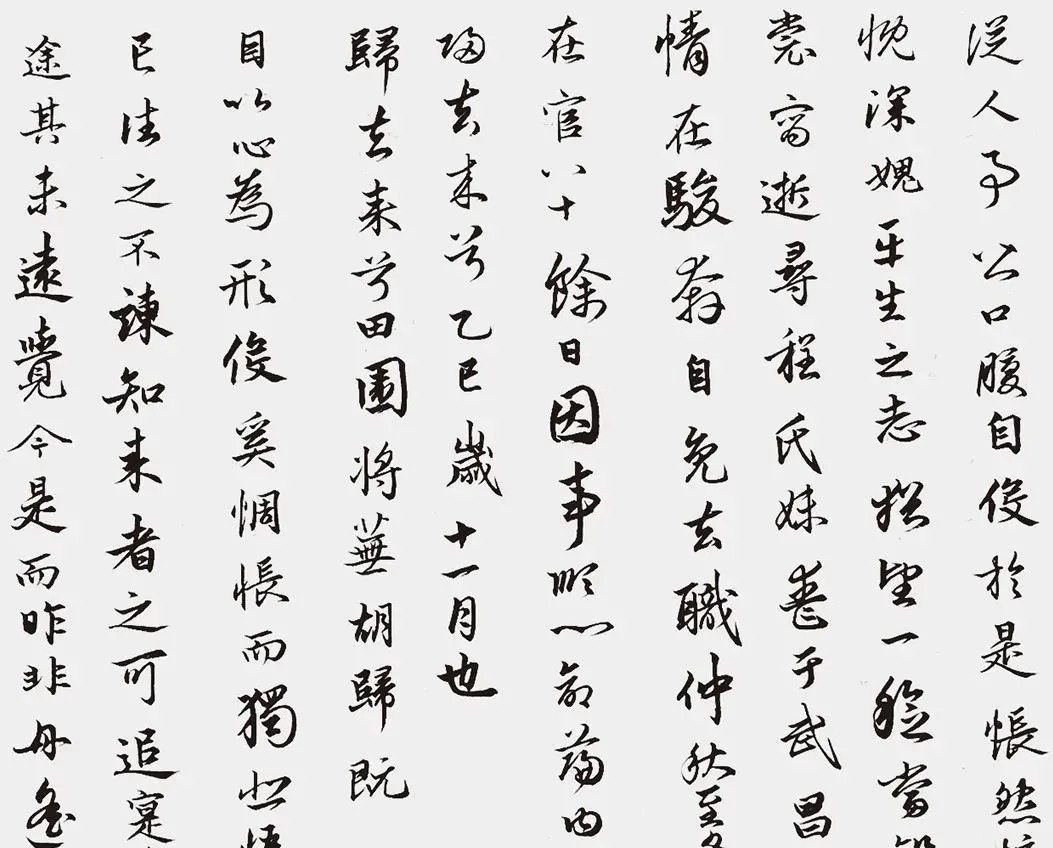 從人事皆口腹自役於是悵然
慨深愧平生之志猶望一稔當
裳宵逝尋程氏妹喪于武昌
情在駿奔自免去職仲秋至冬
在官八十餘日因事順心命篇曰
歸去來兮乙巳歲十一月也
歸去來兮田園將蕪胡歸既
自以心為形役奚惆悵而獨悲悟
已往之不諫知來者之可追寔
途其未遠覺今是而昨非舟遙